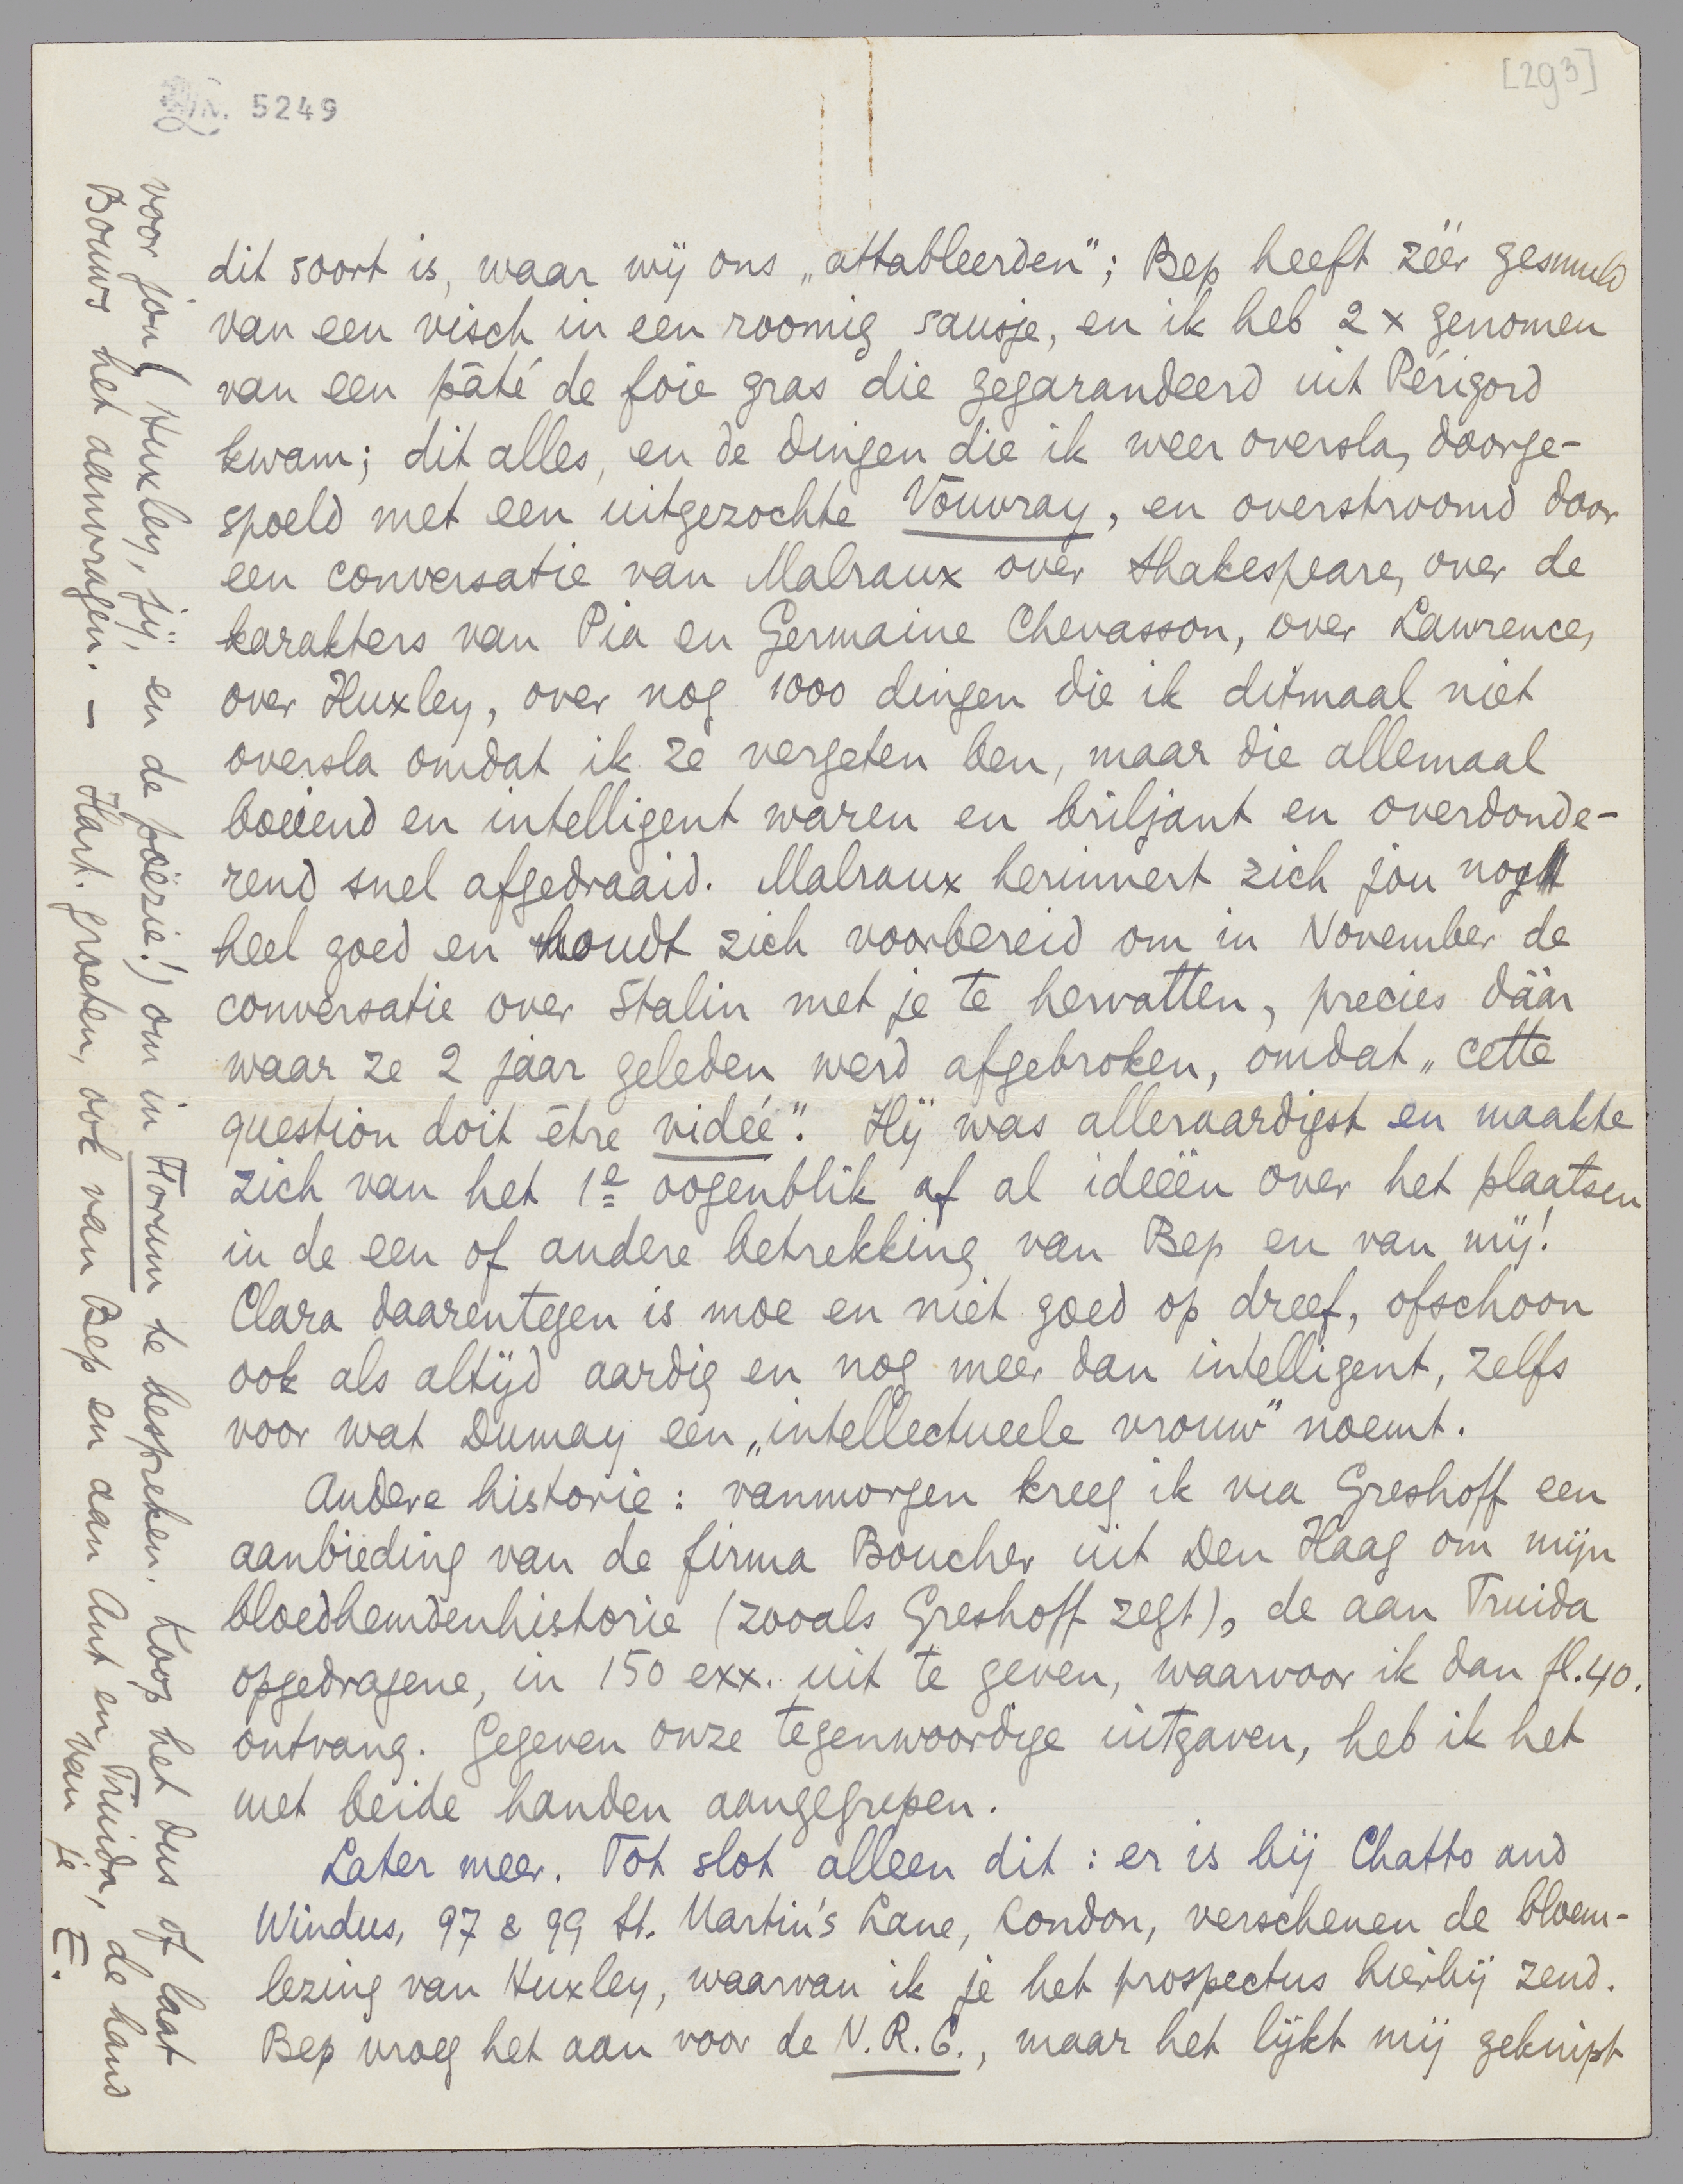 5249
[293]
dit soort is, waar wij ons „attableerden”; Bep heeft zéér gesmuld
van een visch in een roomig sausje, en ik heb 2 x genomen
van een pâté de foie gras die gegarandeerd uit Périgord
kwam; dit alles, en de dingen die ik weer oversla, doorge-
spoeld met een uitgezochte Vouvray, en overstroomd door
een conversatie van Malraux over Shakespeare, over de
karakters van Pia en Germaine Chevasson, over Lawrence,
over Huxley, over nog 1000 dingen die ik ditmaal niet
oversla omdat ik ze vergeten ben, maar die allemaal
boeiend en intelligent waren en briljant en overdonde-
rend snel afgedraaid. Malraux herinnert zich jou nog
heel goed en houdt zich voorbereid om in November de
conversatie over Stalin met je te hervatten, precies dáár
waar ze 2 jaar geleden werd afgebroken, omdat „cette
question doit être vidée”. Hij was alleraardigst en maakte
zich van het 1e oogenblik af al ideeën over het plaatsen
in de een of andere betrekking van Bep en van mij!
Clara daarentegen is moe en niet goed op dreef, ofschoon
ook als altijd aardig en nog meer dan intelligent, zelfs
voor wat Dumay een „intellectueele vrouw” noemt.
Andere historie: vanmorgen kreeg ik via Greshoff een
aanbieding van de firma Boucher uit Den Haag om mijn
bloedhemdenhistorie (zooals Greshoff zegt), de aan Truida
opgedragene, in 150 exx. uit te geven, waarvoor ik dan fl.40.
ontvang. Gegeven onze tegenwoordige uitgaven, heb ik het
met beide handen aangegrepen.
Later meer. Tot slot alleen dit: er is bij Chatto and
Windus, 97 & 99 St. Martin's Lane, London, verschenen de bloem-
lezing van Huxley, waarvan ik je het prospectus hierbij zend.
Bep vroeg het aan voor de N.R.C., maar het lijkt mij geknipt
voor jou (Huxley, jij, en de poëzie!) om in Forum te bespreken. Koop het dus of laat
Bouws het aanvragen. – Hart. groeten, ook van Bep en aan Ant en Truida, de hand
van je E.